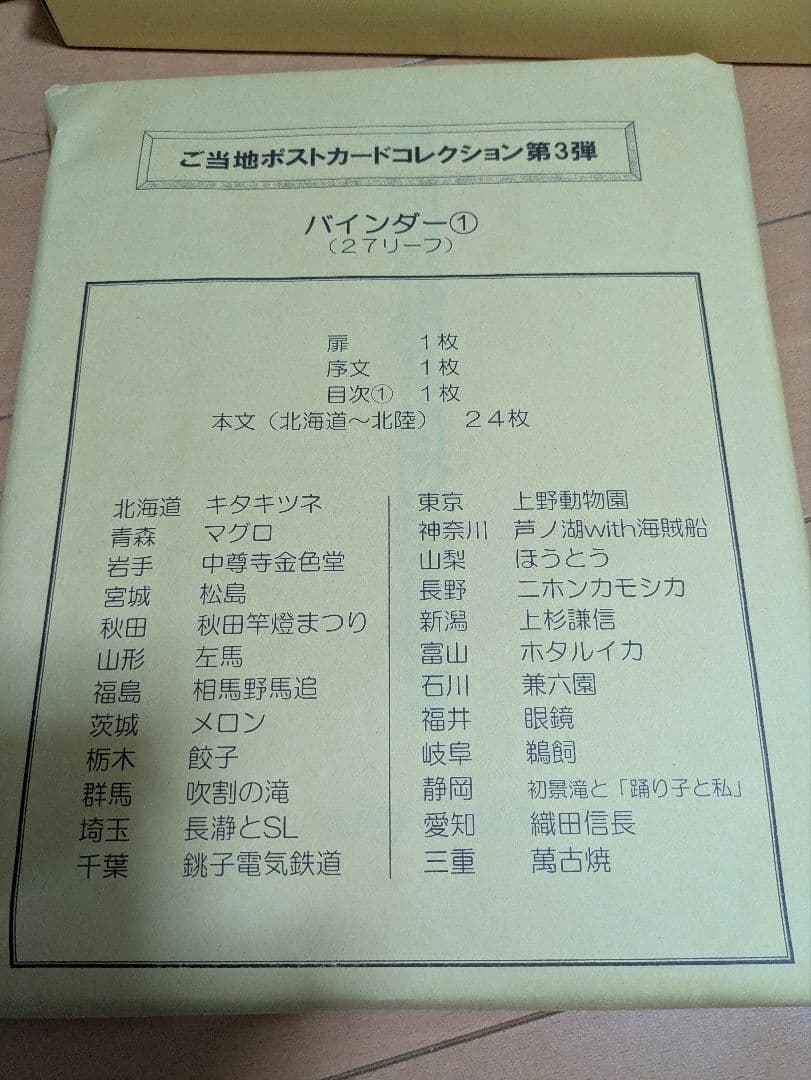 ご当地ポストカードコレクション第3弾
バインダー①
(27リーフ)
扉 1枚
序文 1枚
目次① 1枚
本文(北海道~北陸) 24枚
北海道 キタキツネ
青森 マグロ
岩手 中尊寺金色堂
宮城 松島
秋田 秋田竿燈まつり
山形 左馬
福島 相馬野馬追
茨城 メロン
栃木 餃子
群馬 吹割の滝
埼玉 長瀞とSL
千葉 銚子電気鉄道
東京 上野動物園
神奈川 芦ノ湖with海賊船
山梨 ほうとう
長野 ニホンカモシカ
新潟 上杉謙信
富山 ホタルイカ
石川 兼六園
福井 眼鏡
岐阜 鵜飼
静岡 初景滝と「踊り子と私」
愛知 織田信長
三重 萬古焼